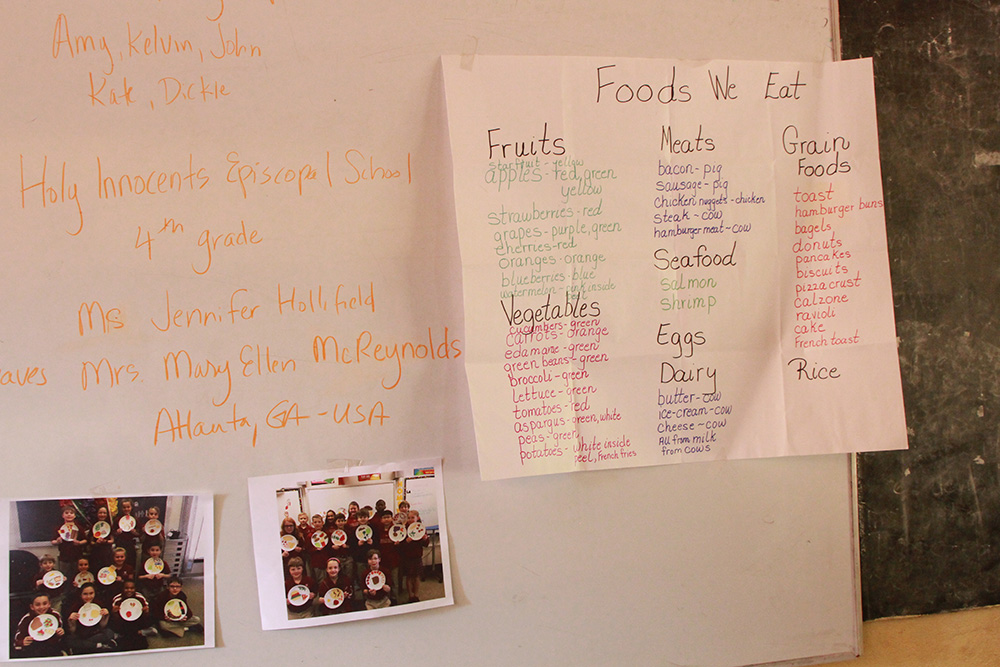 Amy, Kelvin, John
Kate, Dickle
Holy Innocents Episcopal School
4th grade
Ms Jennifer Hollifield
aves Mrs. Mary Ellen McReynolds
Atlanta, GA - USA
Foods We Eat
Fruits
starfruit - yellow
apples - red, green
yellow
strawberries - red
grapes - purple, green
cherries - red
oranges - orange
blueberries - blue
watermelon - pink inside
Vegetables
cucumbers - green
carrots - orange
edamame - green
green beans - green
broccoli - green
lettuce - green
tomatoes - red
aspargus - green, white
peas - green
potatoes - white inside
peel, French fries
Meats
bacon - pig
sausage - pig
chicken nuggets - chicken
steak - cow
hamburger meat - cow
Seafood
salmon
shrimp
Eggs
Dairy
butter - cow
ice-cream - cow
cheese - cow
All from milk
from cows
Grain
Foods
toast
hamburger buns
bagels
donuts
pancakes
biscuits
pizza crust
calzone
ravioli
cake
French toast
Rice